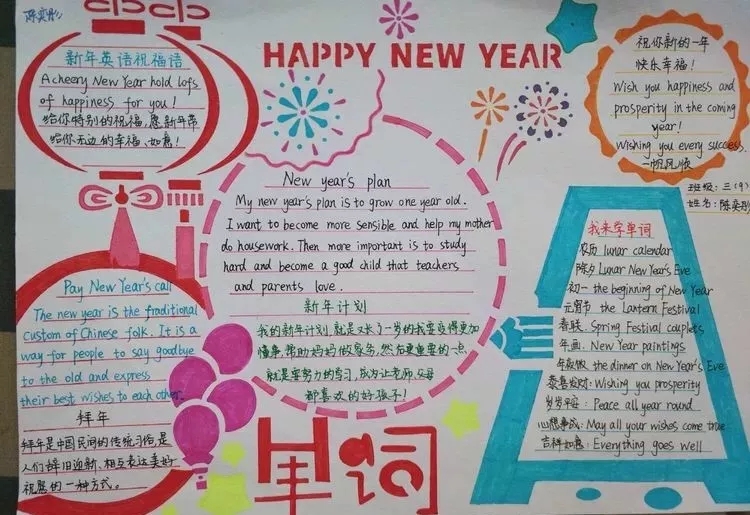 陈奕彤
HAPPY NEW YEAR
新年英语祝福语
A cheery New Year hold lots
of happiness for you!
给你特别的祝福,愿新年带
给你无边的幸福、如意!
祝你新的一年
快乐幸福!
Wish you happiness and
prosperity in the coming
year!
Wishing you every success.
一帆风顺
班级:三(9)
姓名:陈奕彤
New year's plan
My new year's plan is to grow one year old.
I want to become more sensible and help my mother
do housework. Then more important is to study
hard and become a good child that teachers
and parents love.
新年计划
我的新年计划,就是又长了一岁的我要变得更加
懂事,帮助妈妈做家务,然后更重要的一点
就是要努力的学习,成为让老师父母
都喜欢的好孩子!
Pay New Year's call
The new year is the traditional
custom of Chinese folk. It is a
way for people to say goodbye
to the old and express
their best wishes to each other.
拜年
拜年是中国民间的传统习俗,是
人们辞旧迎新、相互表达美好
祝愿的一种方式。
单词
我来学单词
农历 lunar calendar
除夕 Lunar New Year's Eve
初一 the beginning of New Year
元宵节 the Lantern Festival
春联: Spring Festival couplets
年画: New Year paintings
年夜饭 the dinner on New Year's Eve
恭喜发财: Wishing you prosperity
岁岁平安: Peace all year round
心想事成: May all your wishes come true
吉祥如意: Everything goes well